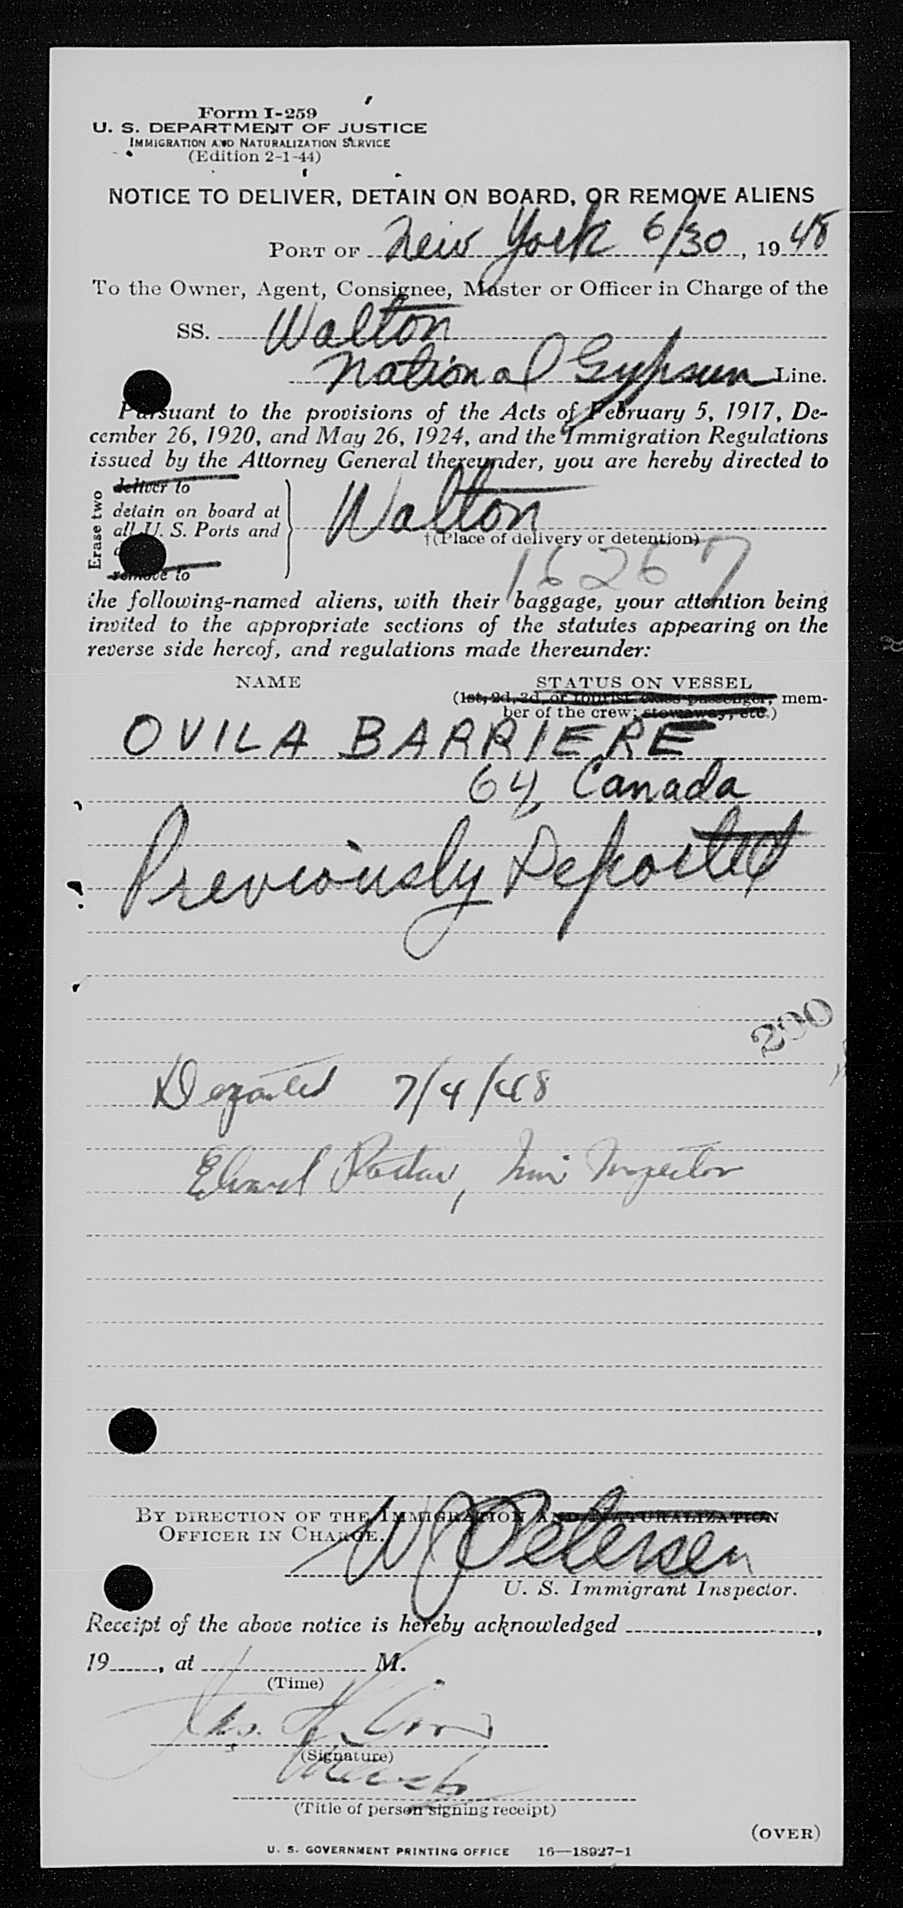 Form I-259
U. S. DEPARTMENT OF JUSTICE
IMMIGRATION AND NATURALIZATION SERVICE
(Edition 2-1-44)
NOTICE TO DELIVER, DETAIN ON BOARD, OR REMOVE ALIENS
PORT OF New York 6/30, 1948
To the Owner, Agent, Consignee, Master or Officer in Charge of the
SS. Walton
National Gypsum Line.
Pursuant to the provisions of the Acts of February 5, 1917, De-
cember 26, 1920, and May 26, 1924, and the Immigration Regulations
issued by the Attorney General thereunder, you are hereby directed to
Erase two
deliver to
detain on board at
all U. S. Ports and
remove to
Walton
†(Place of delivery or detention)
16267
the following-named aliens, with their baggage, your attention being
invited to the appropriate sections of the statutes appearing on the
reverse side hereof, and regulations made thereunder:
NAME STATUS ON VESSEL
(1st, 2d, 3d, or tourist class passenger, mem-
ber of the crew; stowaway, etc.)
OVILA BARRIERE
64, Canada
Previously Deported
200
Departed 7/4/48
Edward , Imm Inspector
BY DIRECTION OF THE IMMIGRATION AND NATURALIZATION
OFFICER IN CHARGE.
W J Petersen
U. S. Immigrant Inspector.
Receipt of the above notice is hereby acknowledged ,
19 , at M.
(Time)
Jas.
(Signature)
(Title of person signing receipt)
(OVER)
U. S. GOVERNMENT PRINTING OFFICE 16—18927-1